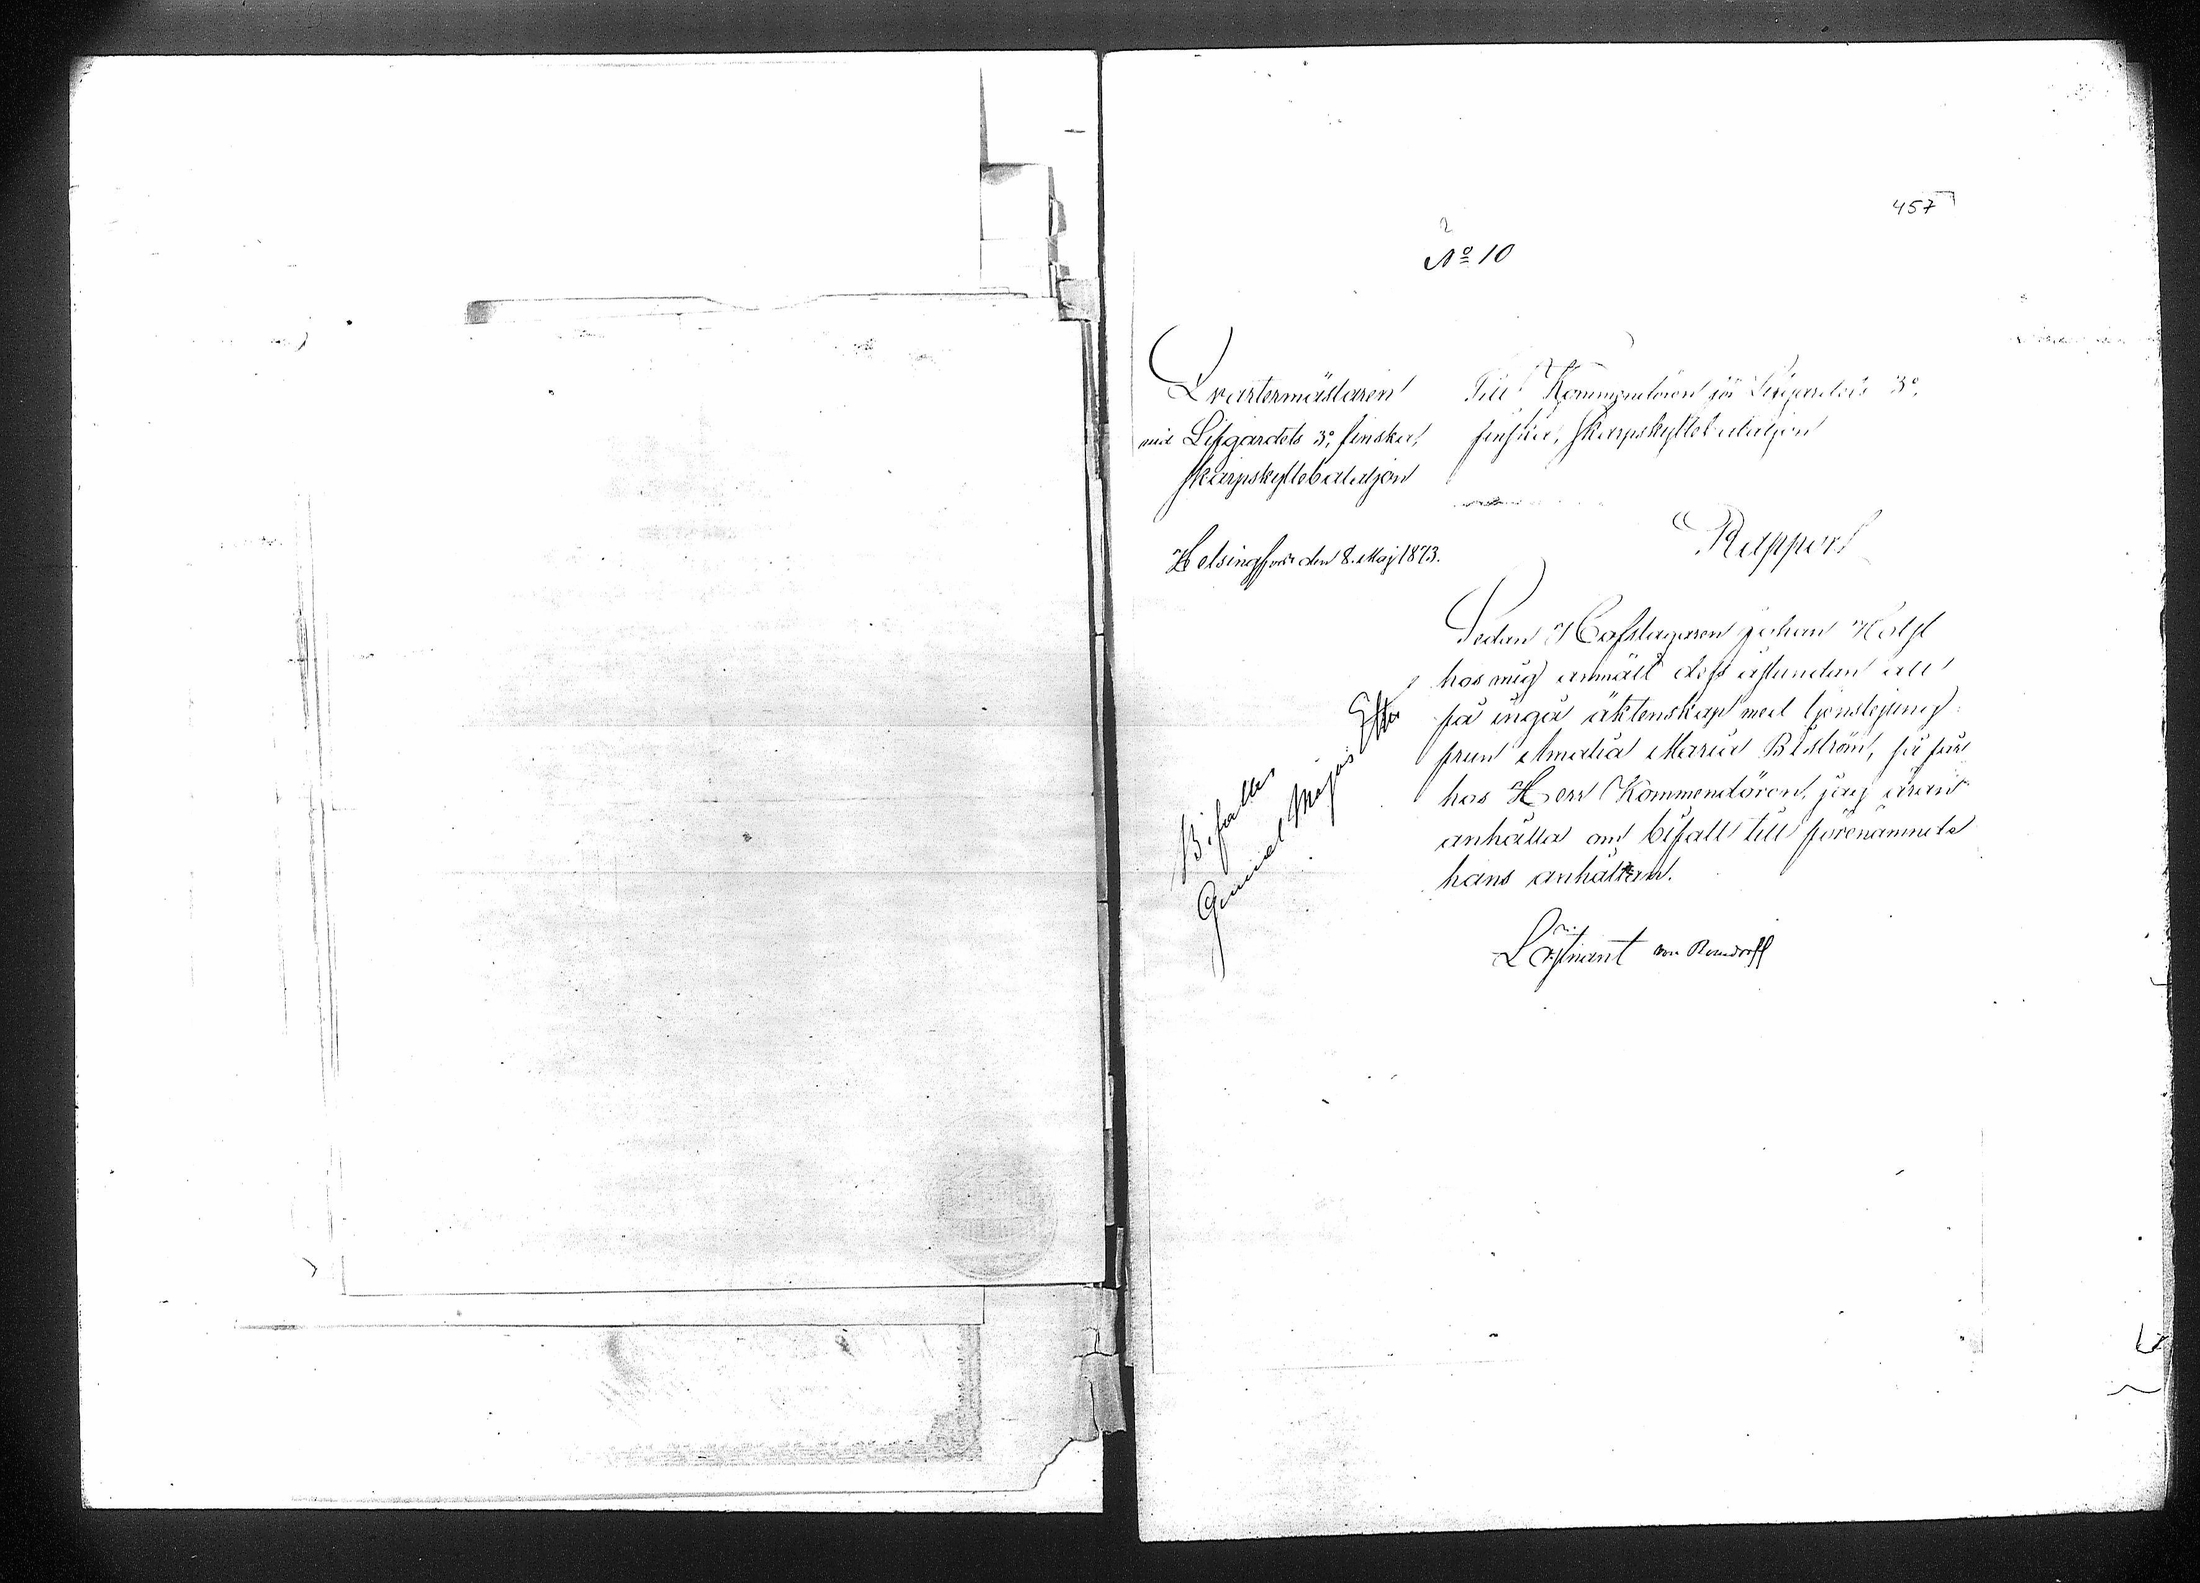 457
No 10
Qvartermästaren
vid Lifgardets 3e finska
skarpskyttebataljon
Helsingfors den 8 Maj 1873.
Till Kommendören för Lifgardets 3e
finska skarpskyttebataljon
Rapport
Sedan Hofslagaren Johan
hos mig anmält dess åstundan att
få ingå äktenskap med tjenstejung-
frun Amalia Maria, får jag
hos Herr Kommendören, jag äran
anhålla om bifall till förenämnde
hans anhållan.
Löjtnant von
Bifalles
General Major Etter